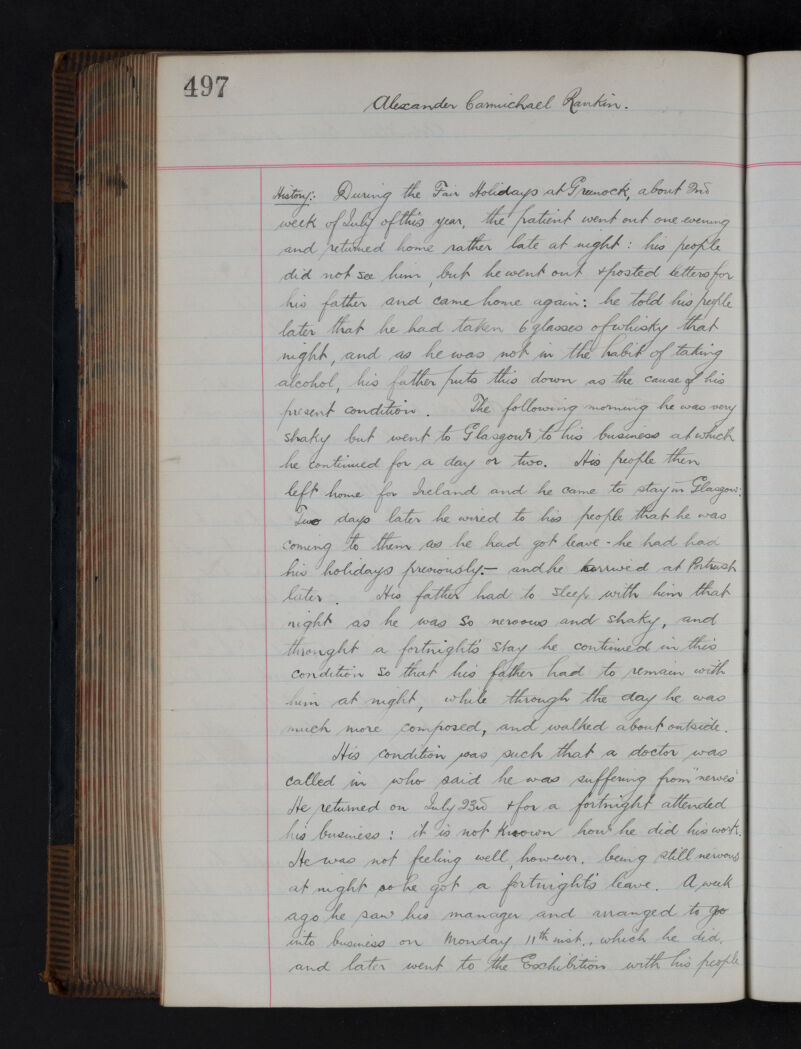 497
Alexander Carmichael Rankin.
History: During the Fair Holidays at Greenock, about 2nd
week of July of this year, the patient went out one evening
and returned home rather late at night: his people
did not see him, but he went out & posted letters for
his father and came home again: he told his people
later that he had taken 6 glasses of whisky that
night, and as he was not in the habit of taking
alcohol, his father puts this down as the cause of his
present condition. The following morning he was very
shaky but went to Glasgow & to his business at which
he continued for a day or two. His people then
left home for Ireland and he came to stay in Glasgow:
Two days later he wired to his people that he was
coming to them as he had got leave - he had had
his holidays previously - and he arrived at Portrush
later. His father had to sleep with him that
night as he was so nervous and shaky, and
throught a fortnight's stay he continued in this
condition so that his father had to remain with
him at night, while through the day he was
much more composed, and walked about outside.
His condition was such that a doctor was
called in who said he was suffering from "nerves"
He returned on July 23rd & for a fortnight attended
his business: it is not known how he did his work.
He was not feeling well, however, being still nervous
at night so he got a fortnight's leave. A week
ago he saw his manager and arranged to go
into business on Monday 11th inst., which he did,
and later went to the Exhibition with his people